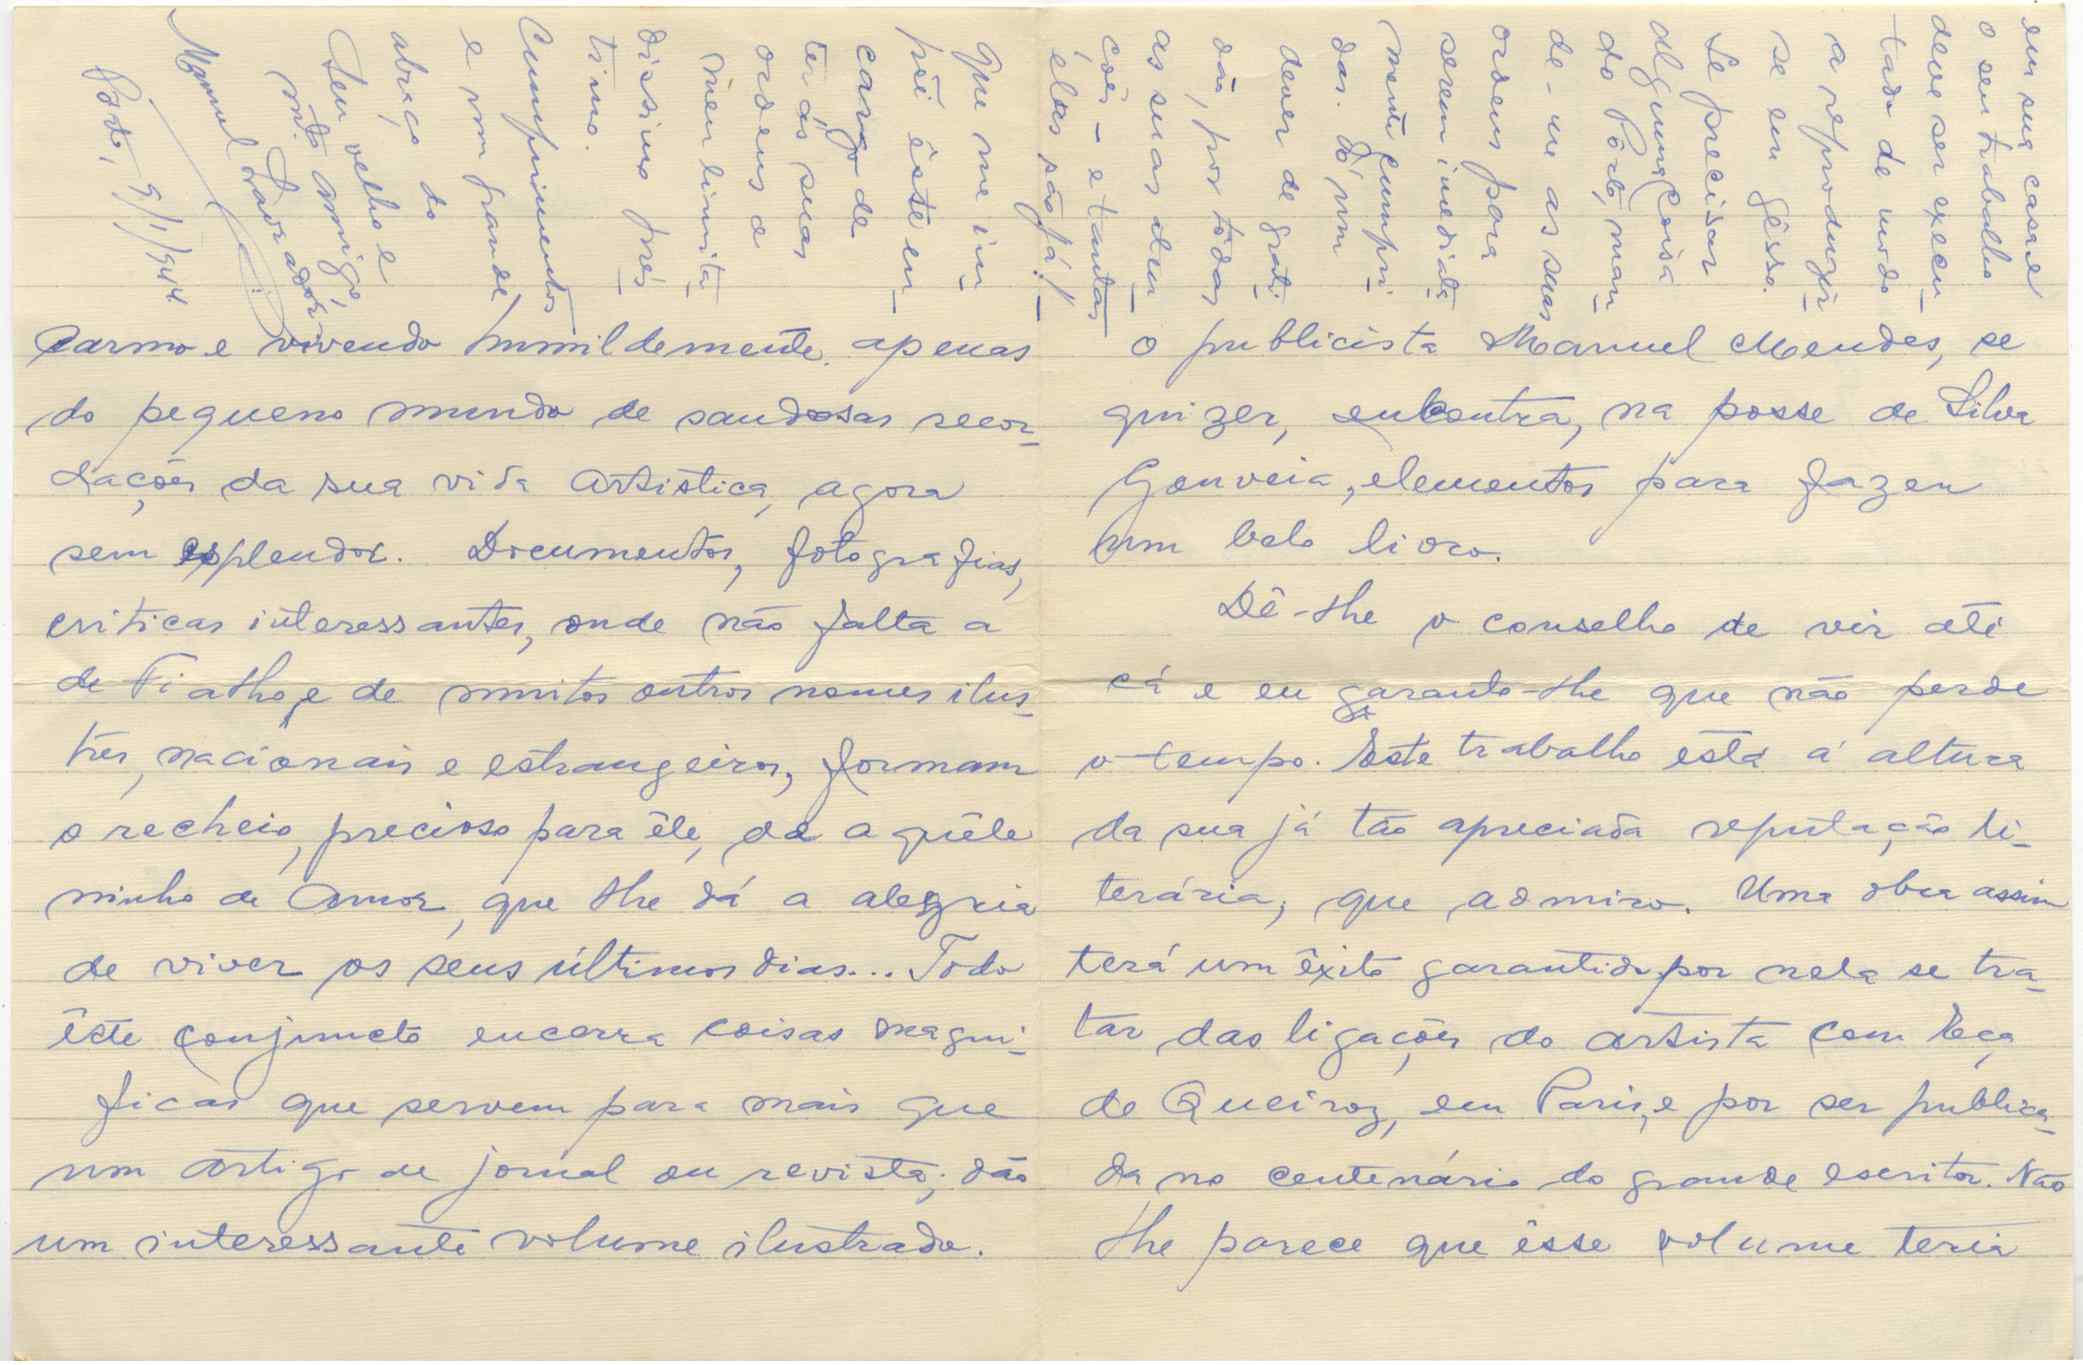 Carmo e vivendo humildemente, apenas
do pequeno mundo de saudosas recor-
dações da sua vida artistica, agora
sem esplendor. Documentos, fotografias,
criticas interessantes, onde não falta a
de Fialho, e de muitos outros nomes ilus-
tres, nacionais e estrangeiros, formam
o recheio, precioso para êle, de aquêle
ninho de Amor, que lhe dá a alegria
de viver os seus últimos dias... Todo
êste conjuncto encerra coisas magni-
ficas que servem para mais que
um artigo de jornal ou revista; dão
um interessante volume ilustrado.
O publicista Manuel Mendes, se
quizer, encontra, na posse de Silva
Gouveia, elementos para fazer
um belo livro.
Dê-lhe o conselho de vir até
cá e eu garanto-lhe que não perde
o tempo. Este trabalho está á altura
da sua já tão apreciada reputação li-
terária, que admiro. Uma obra assim
terá um êxito garantido por nela se tra-
tar das ligações do artista com Eça
de Queiroz, em Paris, e por ser publica-
da no centenário do grande escritor. Não
lhe parece que êsse volume teria
em sua casa e
o seu trabalho
deve ser execu-
tado de modo
a reproduzir-
se em gêsso.
Se precisar
alguma coisa
do Pôrto, man-
de-me as suas
ordens para
serem imediata-
mente cumpri-
das. Só um
dever de grati-
dão, por tôdas
as suas aten-
ções - e tantas
élas são já! -
que me im-
põe êste en-
cargo de
ter ás suas
ordens o
meu limita-
dissimo prés-
timo.
Cumprimentos
e um grande
abraço do
Seu velho e
mto amigo,
Lavrador
Manuel Lavrador
Porto, 9/1/944.